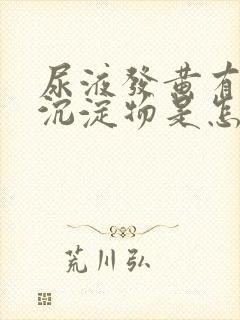 尿液發黃有
沉淀物是怎
荒川弘